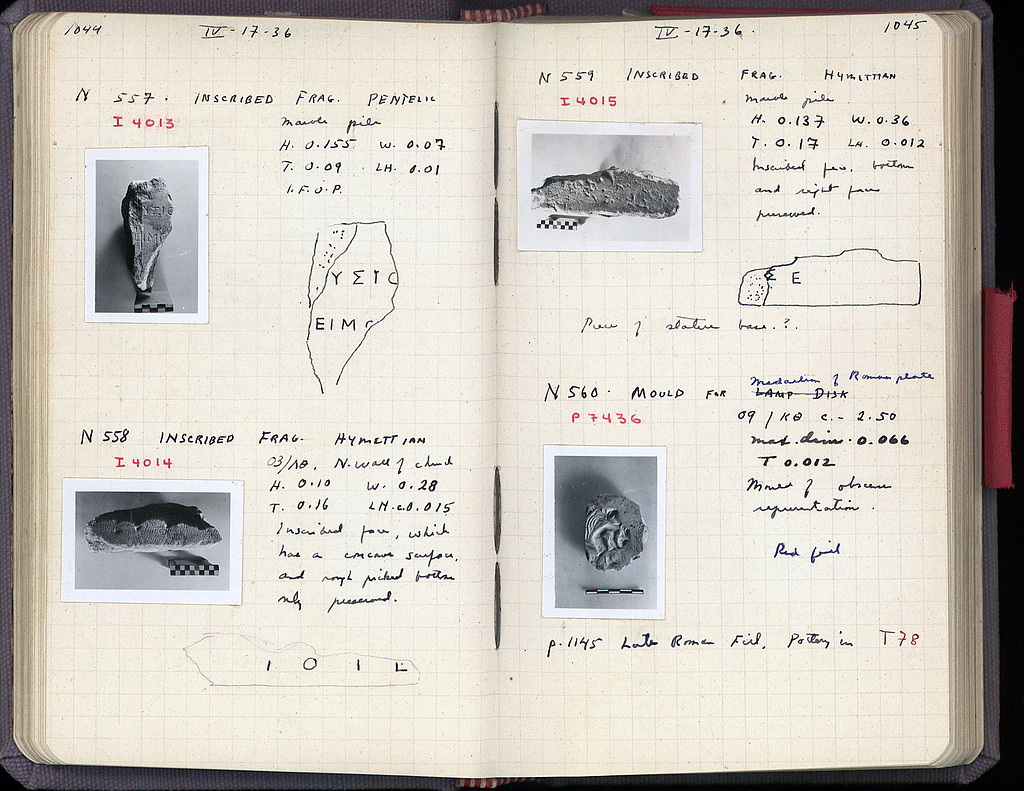 1044 IV-17-36
N 557. INSCRIBED FRAG. PENTELIC
I 4013 marble pile
H. 0.155 W. 0.07
T. 0.09 LH. 0.01
I.F.O.P.
ΥΣΙΟ
ΕΙΜ
N 558 INSCRIBED FRAG. HYMETTIAN
I 4014 03/ΛΘ. N. Wall of church
H. 0.10 W. 0.28
T. 0.16 LH. c. 0.015
Inscribed face, which
has a concave surface,
and rough picked bottom
only preserved.
Ι Ο Ι L
IV-17-36. 1045
N 559 INSCRIBED FRAG. HYMETTIAN
I 4015 marble pile
H. 0.137 W. 0.36
T. 0.17 LH. 0.012
Inscribed face, bottom
and right face
preserved.
Σ Ε
Piece of statue base.?.
N 560. MOULD FOR LAMP DISK
Medallion of Roman plate
P 7436 09/ΚΘ c. - 2.50
max. dim. 0.066
T 0.012
Mould of obscene
representation.
Red fill
p. 1145 Late Roman Fill, Pottery in T78